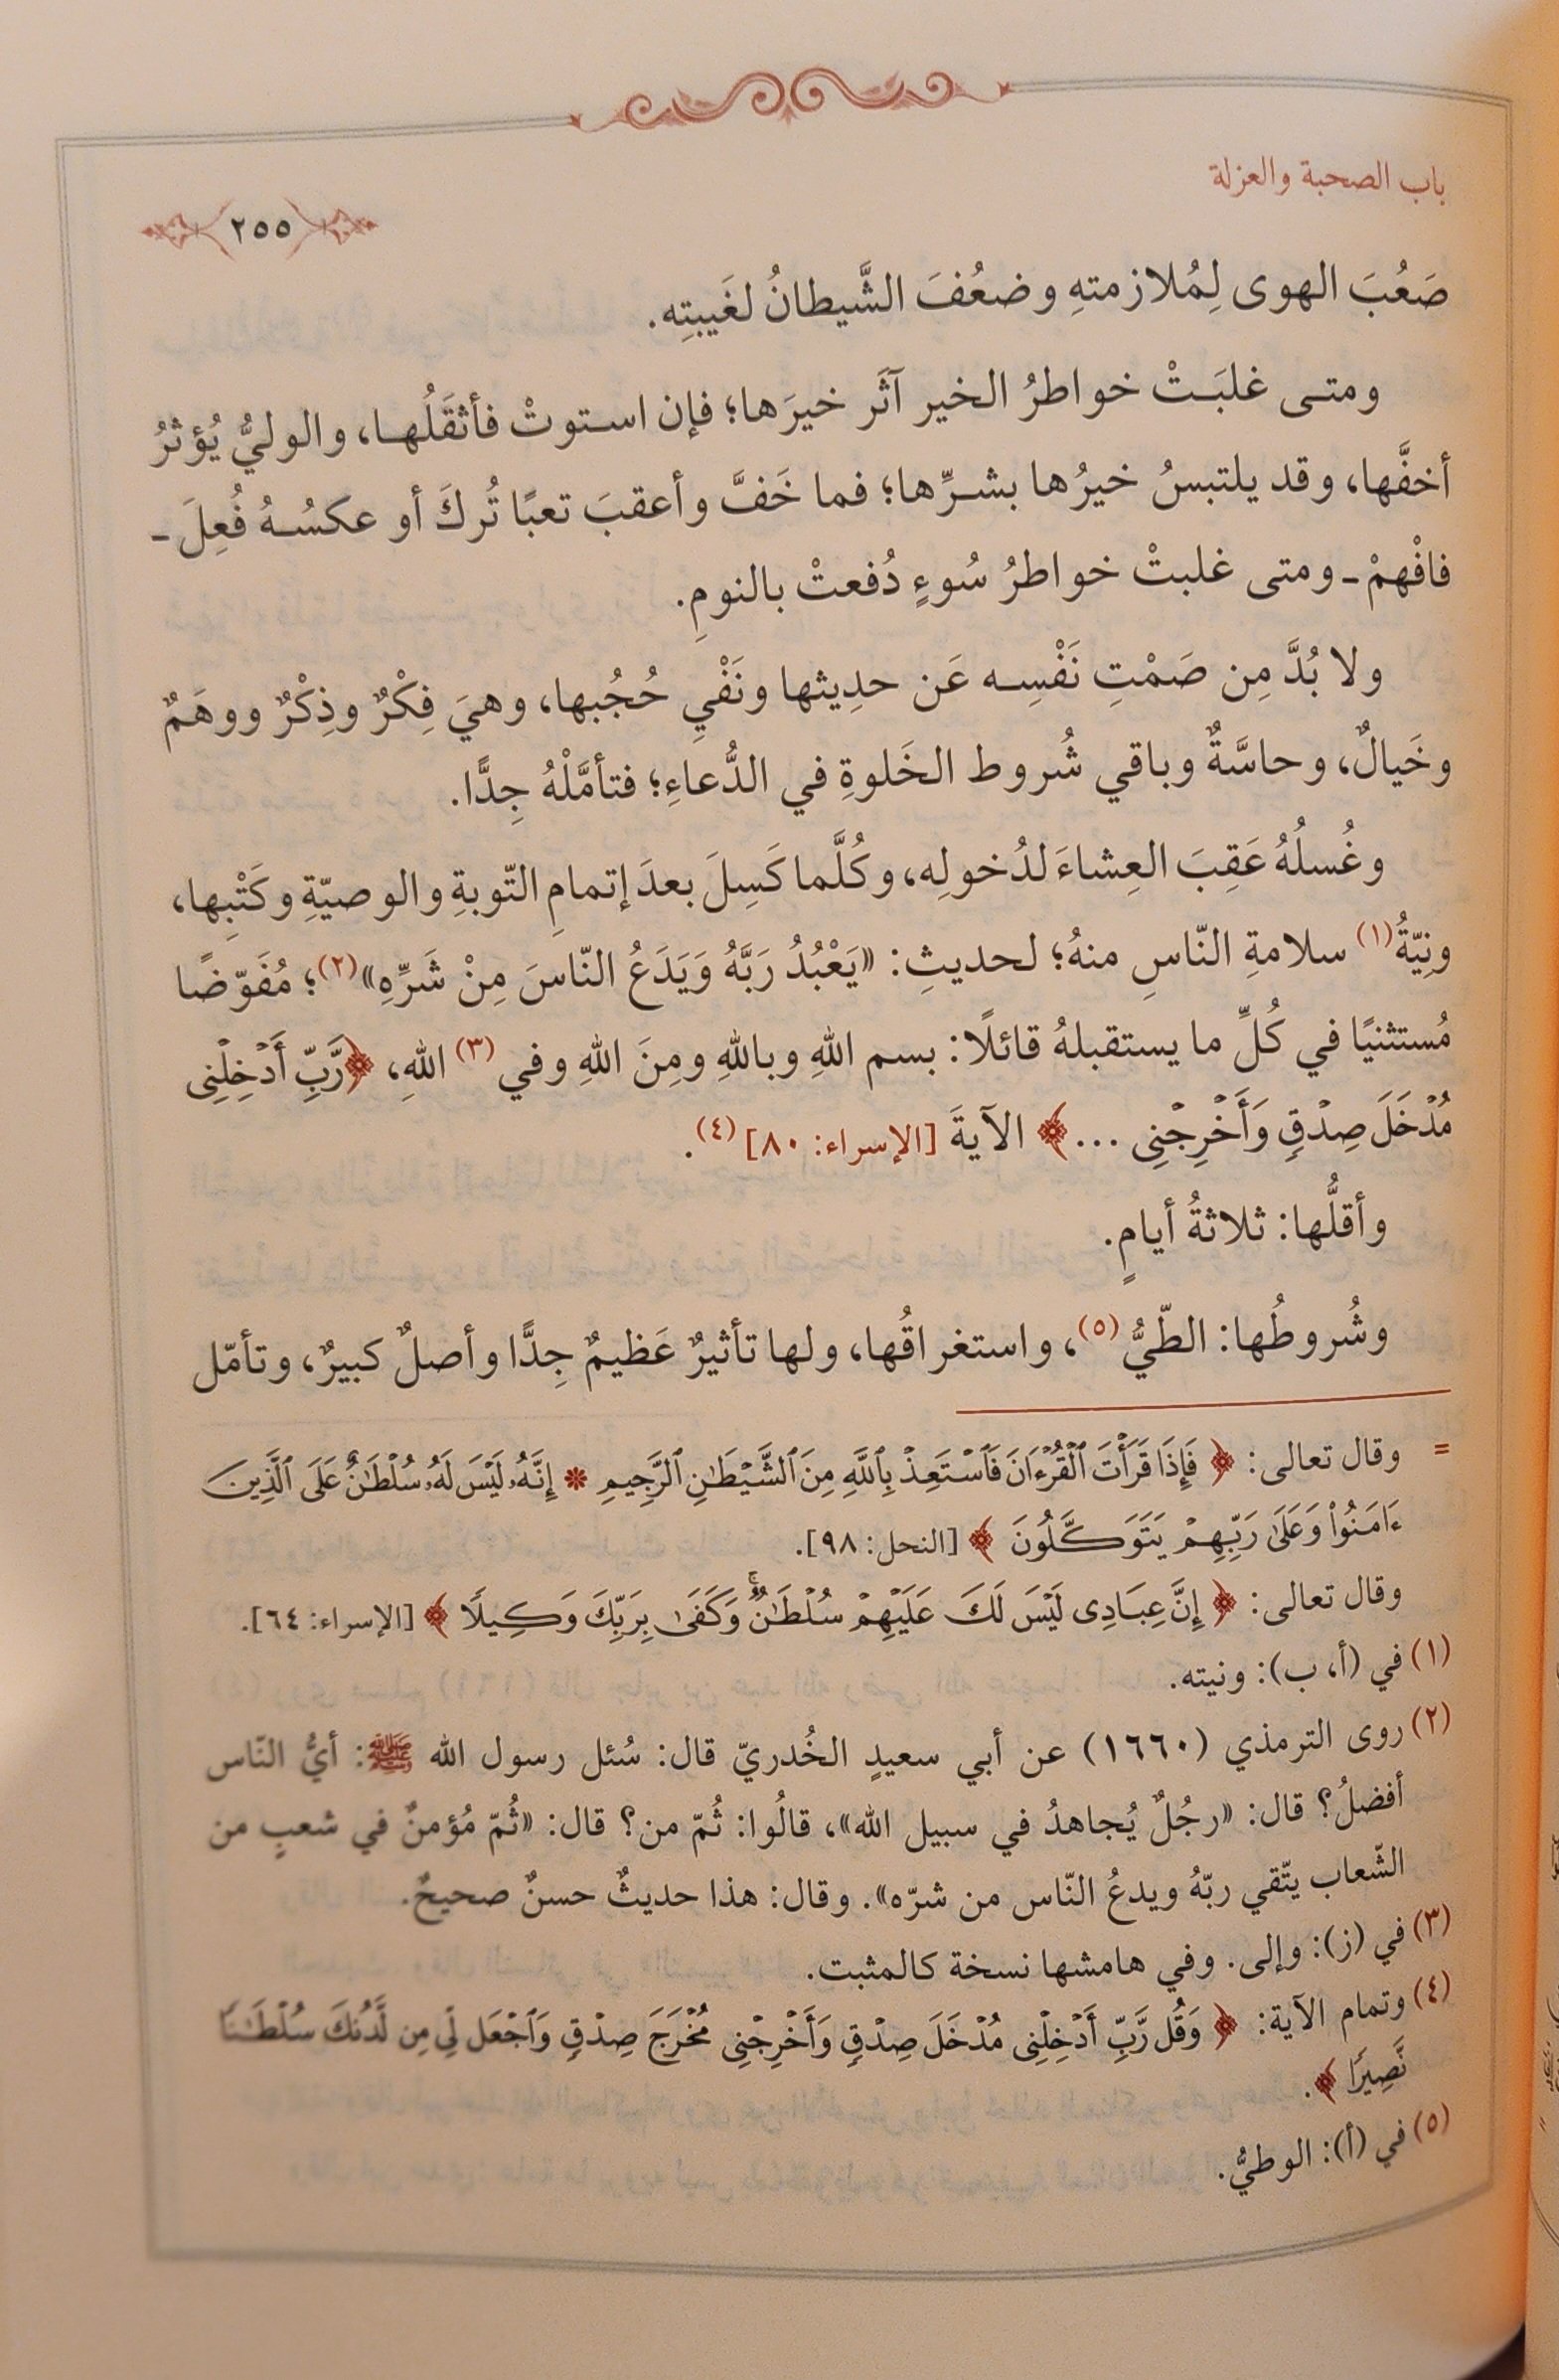 باب الصحبة والعزلة
٢٥٥
صَعُبَ الهوى لِمُلازمتهِ وضعُفَ الشَّيطانُ لغَيبتِه.
ومتى غلبَتْ خواطرُ الخير آثَر خيرَها؛ فإن استوتْ فأثقَلُها، والوليُّ يُؤثرُ
أخفَّها، وقد يلتبسُ خيرُها بشرِّها؛ فما خَفَّ وأعقبَ تعبًا تُركَ أو عكسُهُ فُعِلَ -
فافْهمْ - ومتى غلبتْ خواطرُ سُوءٍ دُفعتْ بالنومِ.
ولا بُدَّ مِن صَمْتِ نَفْسِه عَن حدِيثها ونَفْيِ حُجُبها، وهيَ فِكْرٌ وذِكْرٌ ووهَمٌ
وخَيالٌ، وحاسَّةٌ وباقي شُروط الخَلوةِ في الدُّعاءِ؛ فتأمَّلْهُ جِدًّا.
وغُسلُهُ عَقِبَ العِشاءَ لدُخولِه، وكُلَّما كَسِلَ بعدَ إتمامِ التّوبةِ والوصيّةِ وكَتْبِها،
ونِيّةُ(١) سلامةِ النّاسِ منهُ؛ لحديثِ: «يَعْبُدُ رَبَّهُ وَيَدَعُ النّاسَ مِنْ شَرِّهِ»(٢)؛ مُفَوّضًا
مُستثنيًا في كُلِّ ما يستقبلهُ قائلًا: بسم اللهِ وباللهِ ومِنَ اللهِ وفي(٣) اللهِ، ﴿رَّبِّ أَدْخِلْنِى
مُدْخَلَ صِدْقٍ وَأَخْرِجْنِى ...﴾ الآيةَ [الإسراء: ٨٠](٤).
وأقلُّها: ثلاثةُ أيامٍ.
وشُروطُها: الطّيُّ(٥)، واستغراقُها، ولها تأثيرٌ عَظيمٌ جِدًّا وأصلٌ كبيرٌ، وتأمّل
= وقال تعالى: ﴿فَإِذَا قَرَأْتَ ٱلْقُرْءَانَ فَٱسْتَعِذْ بِٱللَّهِ مِنَ ٱلشَّيْطَٰنِ ٱلرَّجِيمِ * إِنَّهُۥ لَيْسَ لَهُۥ سُلْطَٰنٌ عَلَى ٱلَّذِينَ
ءَامَنُوا۟ وَعَلَىٰ رَبِّهِمْ يَتَوَكَّلُونَ﴾ [النحل: ٩٨].
وقال تعالى: ﴿إِنَّ عِبَادِى لَيْسَ لَكَ عَلَيْهِمْ سُلْطَٰنٌ ۚ وَكَفَىٰ بِرَبِّكَ وَكِيلًا﴾ [الإسراء: ٦٤].
(١) في (أ، ب): ونيته.
(٢) روى الترمذي (١٦٦٠) عن أبي سعيدٍ الخُدريّ قال: سُئل رسول الله ﷺ: أيُّ النّاس
أفضلُ؟ قال: «رجُلٌ يُجاهدُ في سبيل الله»، قالُوا: ثُمّ من؟ قال: «ثُمّ مُؤمنٌ في شعبٍ من
الشّعاب يتّقي ربّهُ ويدعُ النّاس من شرّه». وقال: هذا حديثٌ حسنٌ صحيحٌ.
(٣) في (ز): وإلى. وفي هامشها نسخة كالمثبت.
(٤) وتمام الآية: ﴿وَقُل رَّبِّ أَدْخِلْنِى مُدْخَلَ صِدْقٍ وَأَخْرِجْنِى مُخْرَجَ صِدْقٍ وَٱجْعَل لِّى مِن لَّدُنكَ سُلْطَٰنًا
نَّصِيرًا﴾.
(٥) في (أ): الوطيُّ.